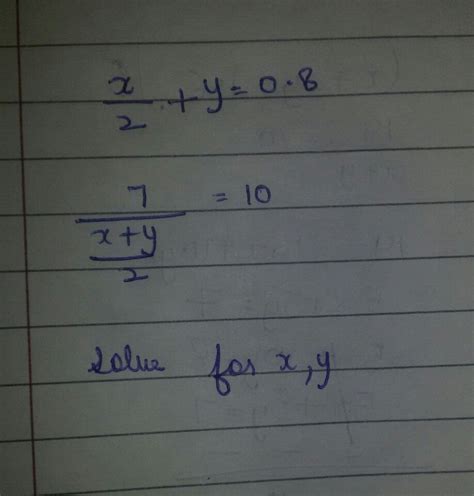 x/2 + y = 0.8
7/((x+y)/2) = 10
Solve for x, y